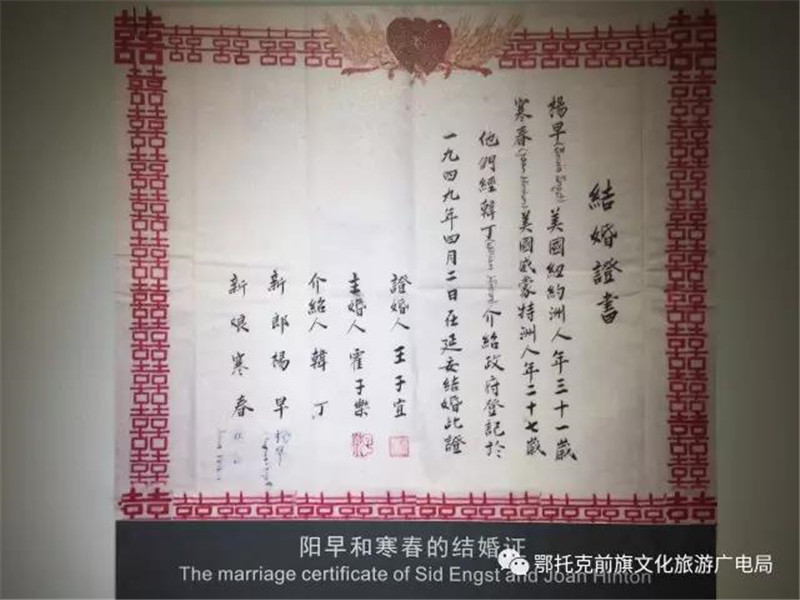 結婚證書
楊早(Erwin Engst)美國紐約洲人年三十一歲
寒春(Joan Hinton)美國威蒙特洲人年二十七歲
他們經韓丁(William Hinton)介紹政府登記於
一九四九年四月二日在延安結婚此證
證婚人 王子宜
主婚人 霍子樂
介紹人 韓丁
新郎楊早
新娘寒春
阳早和寒春的结婚证
The marriage certificate of Sid Engst and Joan Hinton
鄂托克前旗文化旅游广电局